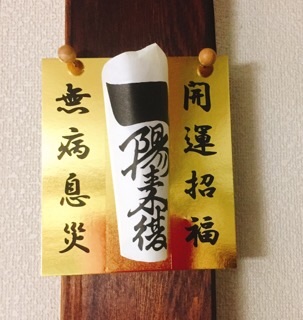 開運招福
一陽来復
無病息災